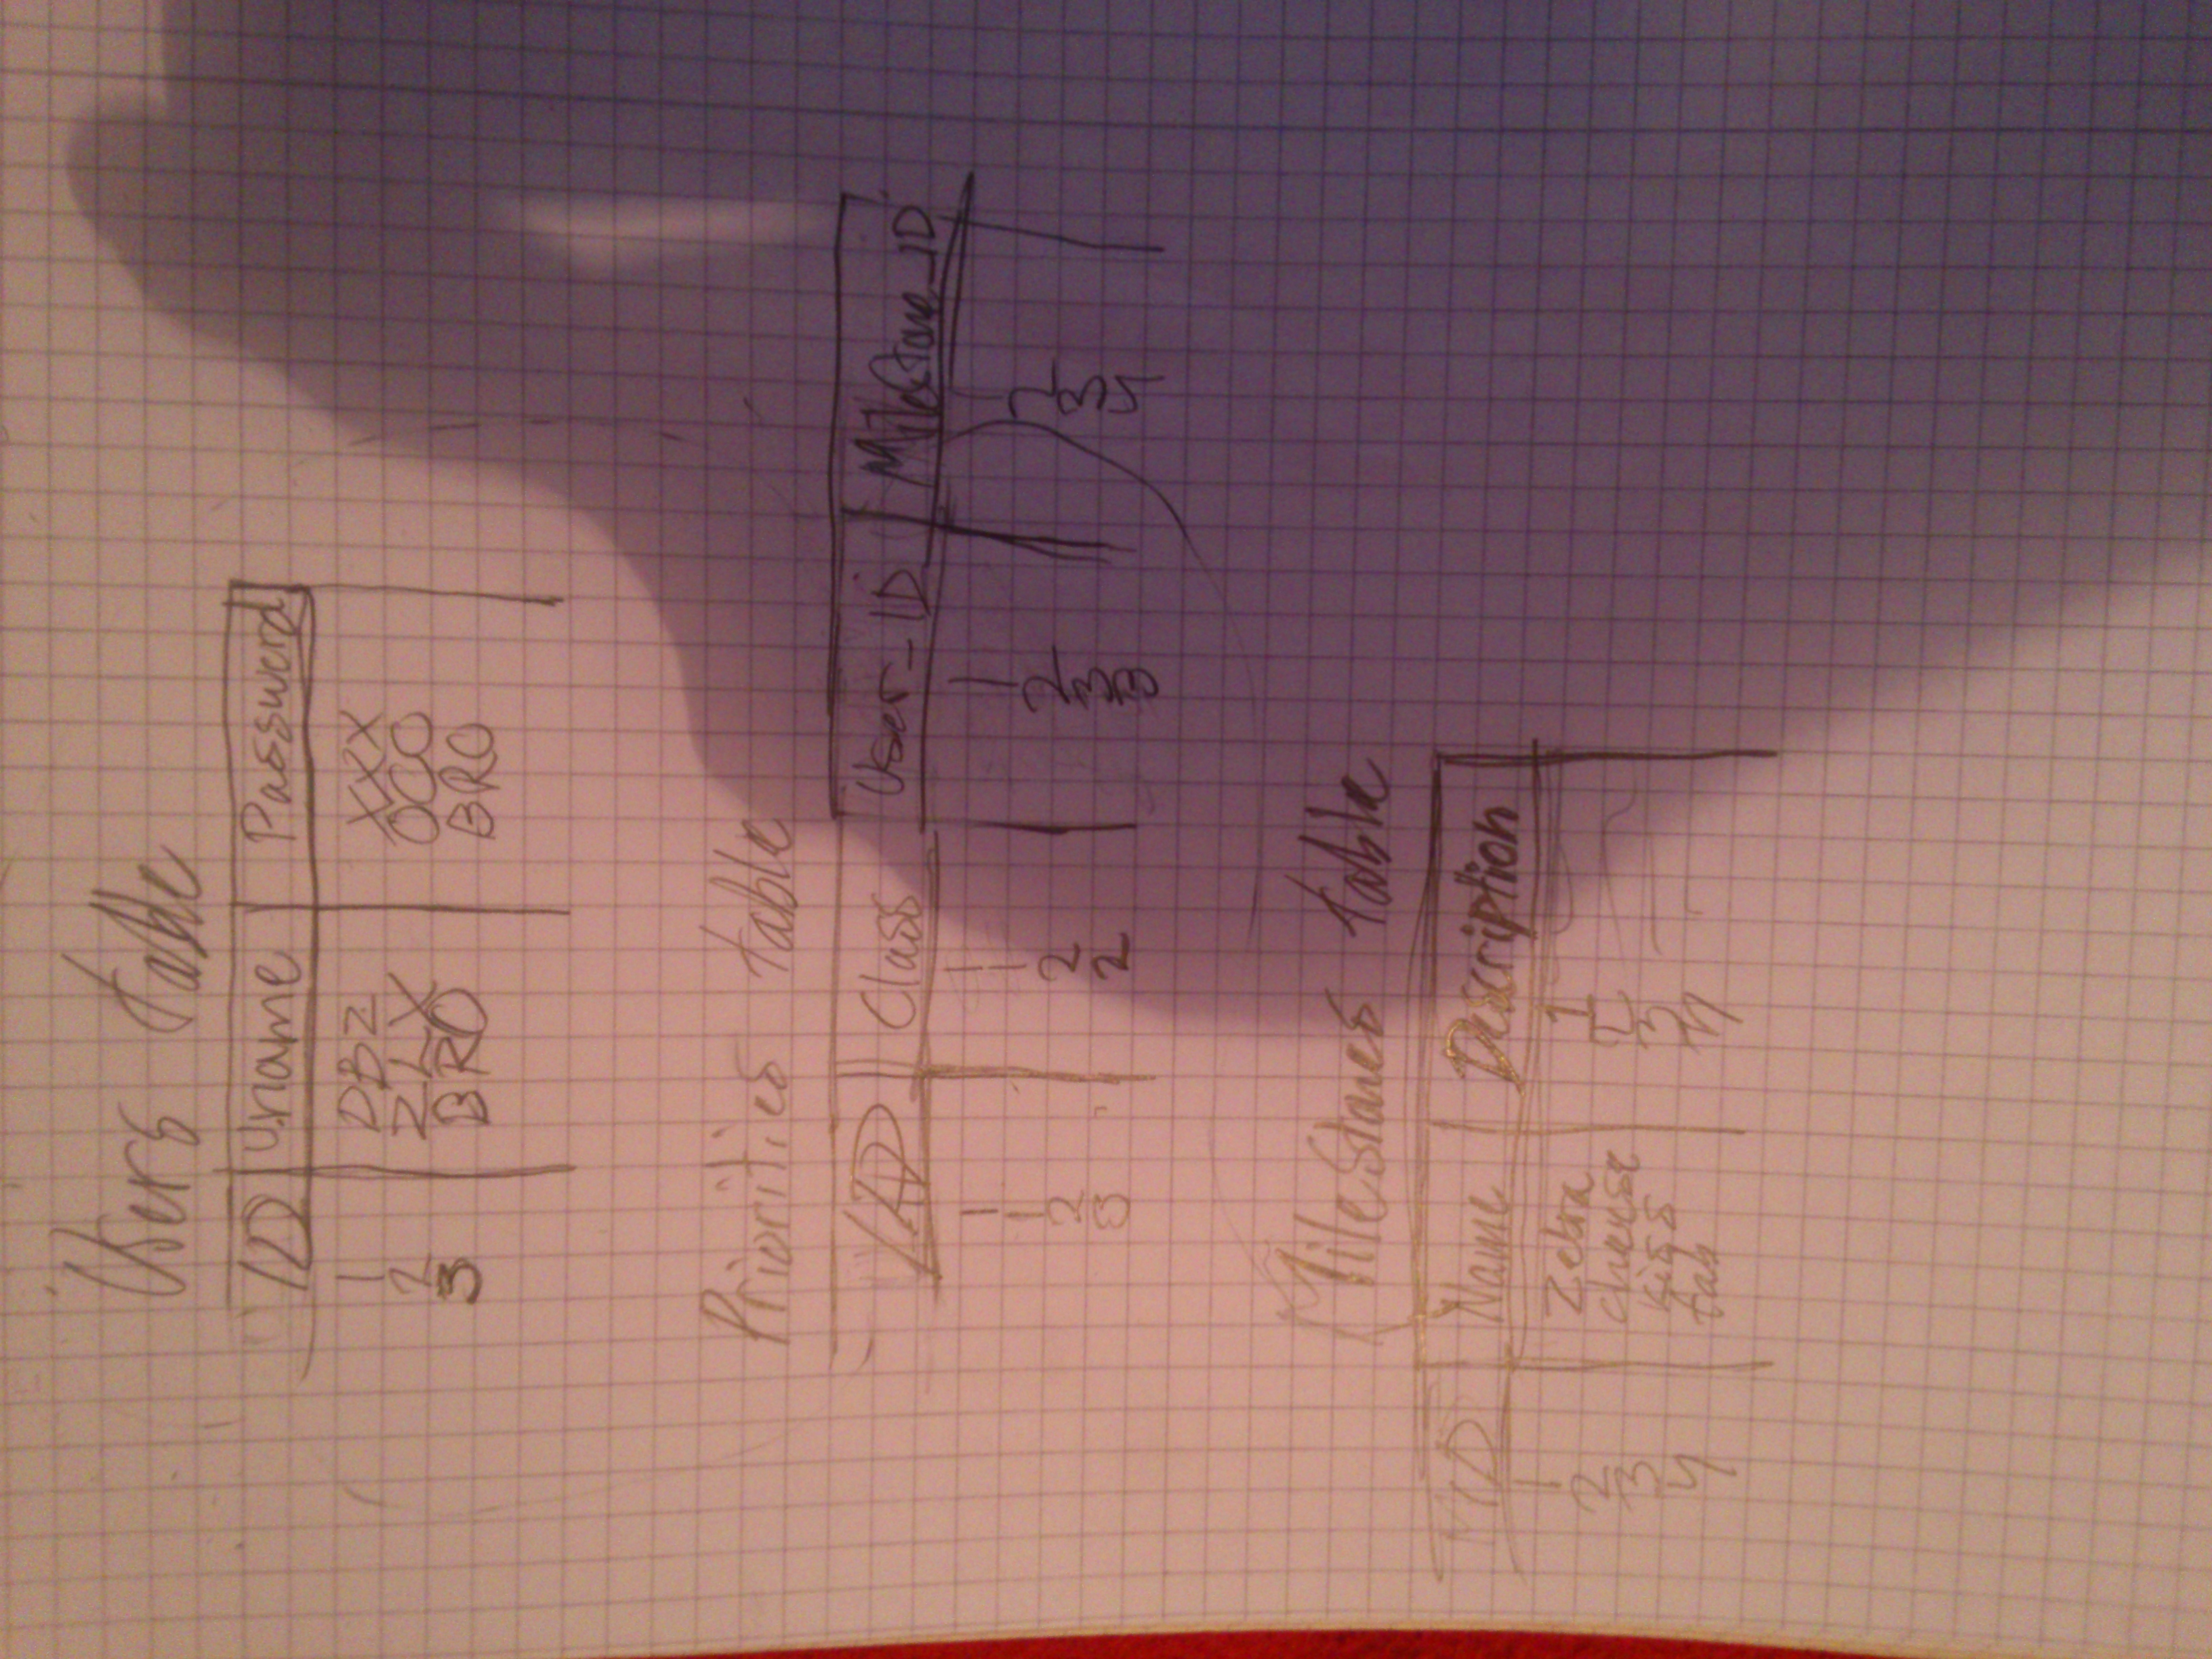 Users table
ID Uname Password
1 DBZ XXX
2 ZLX OCC
3 BRO BRO
Priorities table
ID Class User_ID Milestone_ID
1 1 1 1
1 1 2 2
2 2 3
3 2
MileStones table
ID Name Description
1 Zebra 1
2 cheese 2
3 kiss 3
4 tab 4